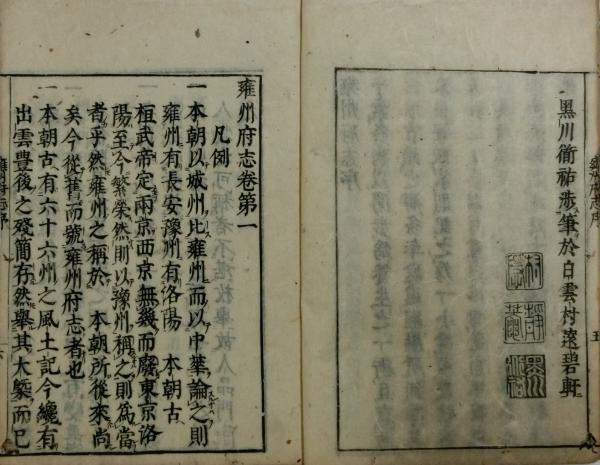 黒川衜祐渉筆於白雲村遠碧軒
五
雍州府志卷第一
凡例
一 本朝以城州比雍州而以中華論之則
雍州有長安豫州有洛陽 本朝古
桓武帝定兩京西京無幾而廢東京洛
陽至今繁榮然則以豫州稱之則為當
者乎然雍州之稱於 本朝所後來尚
矣今從舊而號雍州府志者也
一 本朝古有六十六州之風土記今纔有
出雲豊後之殘簡存然舉其大槩而已